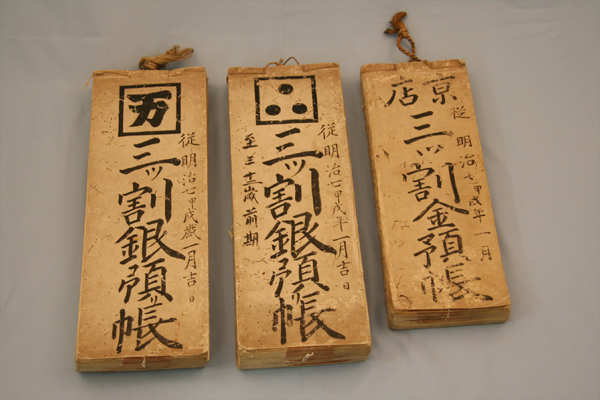 万
従明治七甲戌歳一月吉日
三ッ割銀預帳
従明治七甲戌年一月吉日
三ッ割銀預帳
至三十三歳前期
京店
従明治七甲戌年一月
三ッ割金預帳